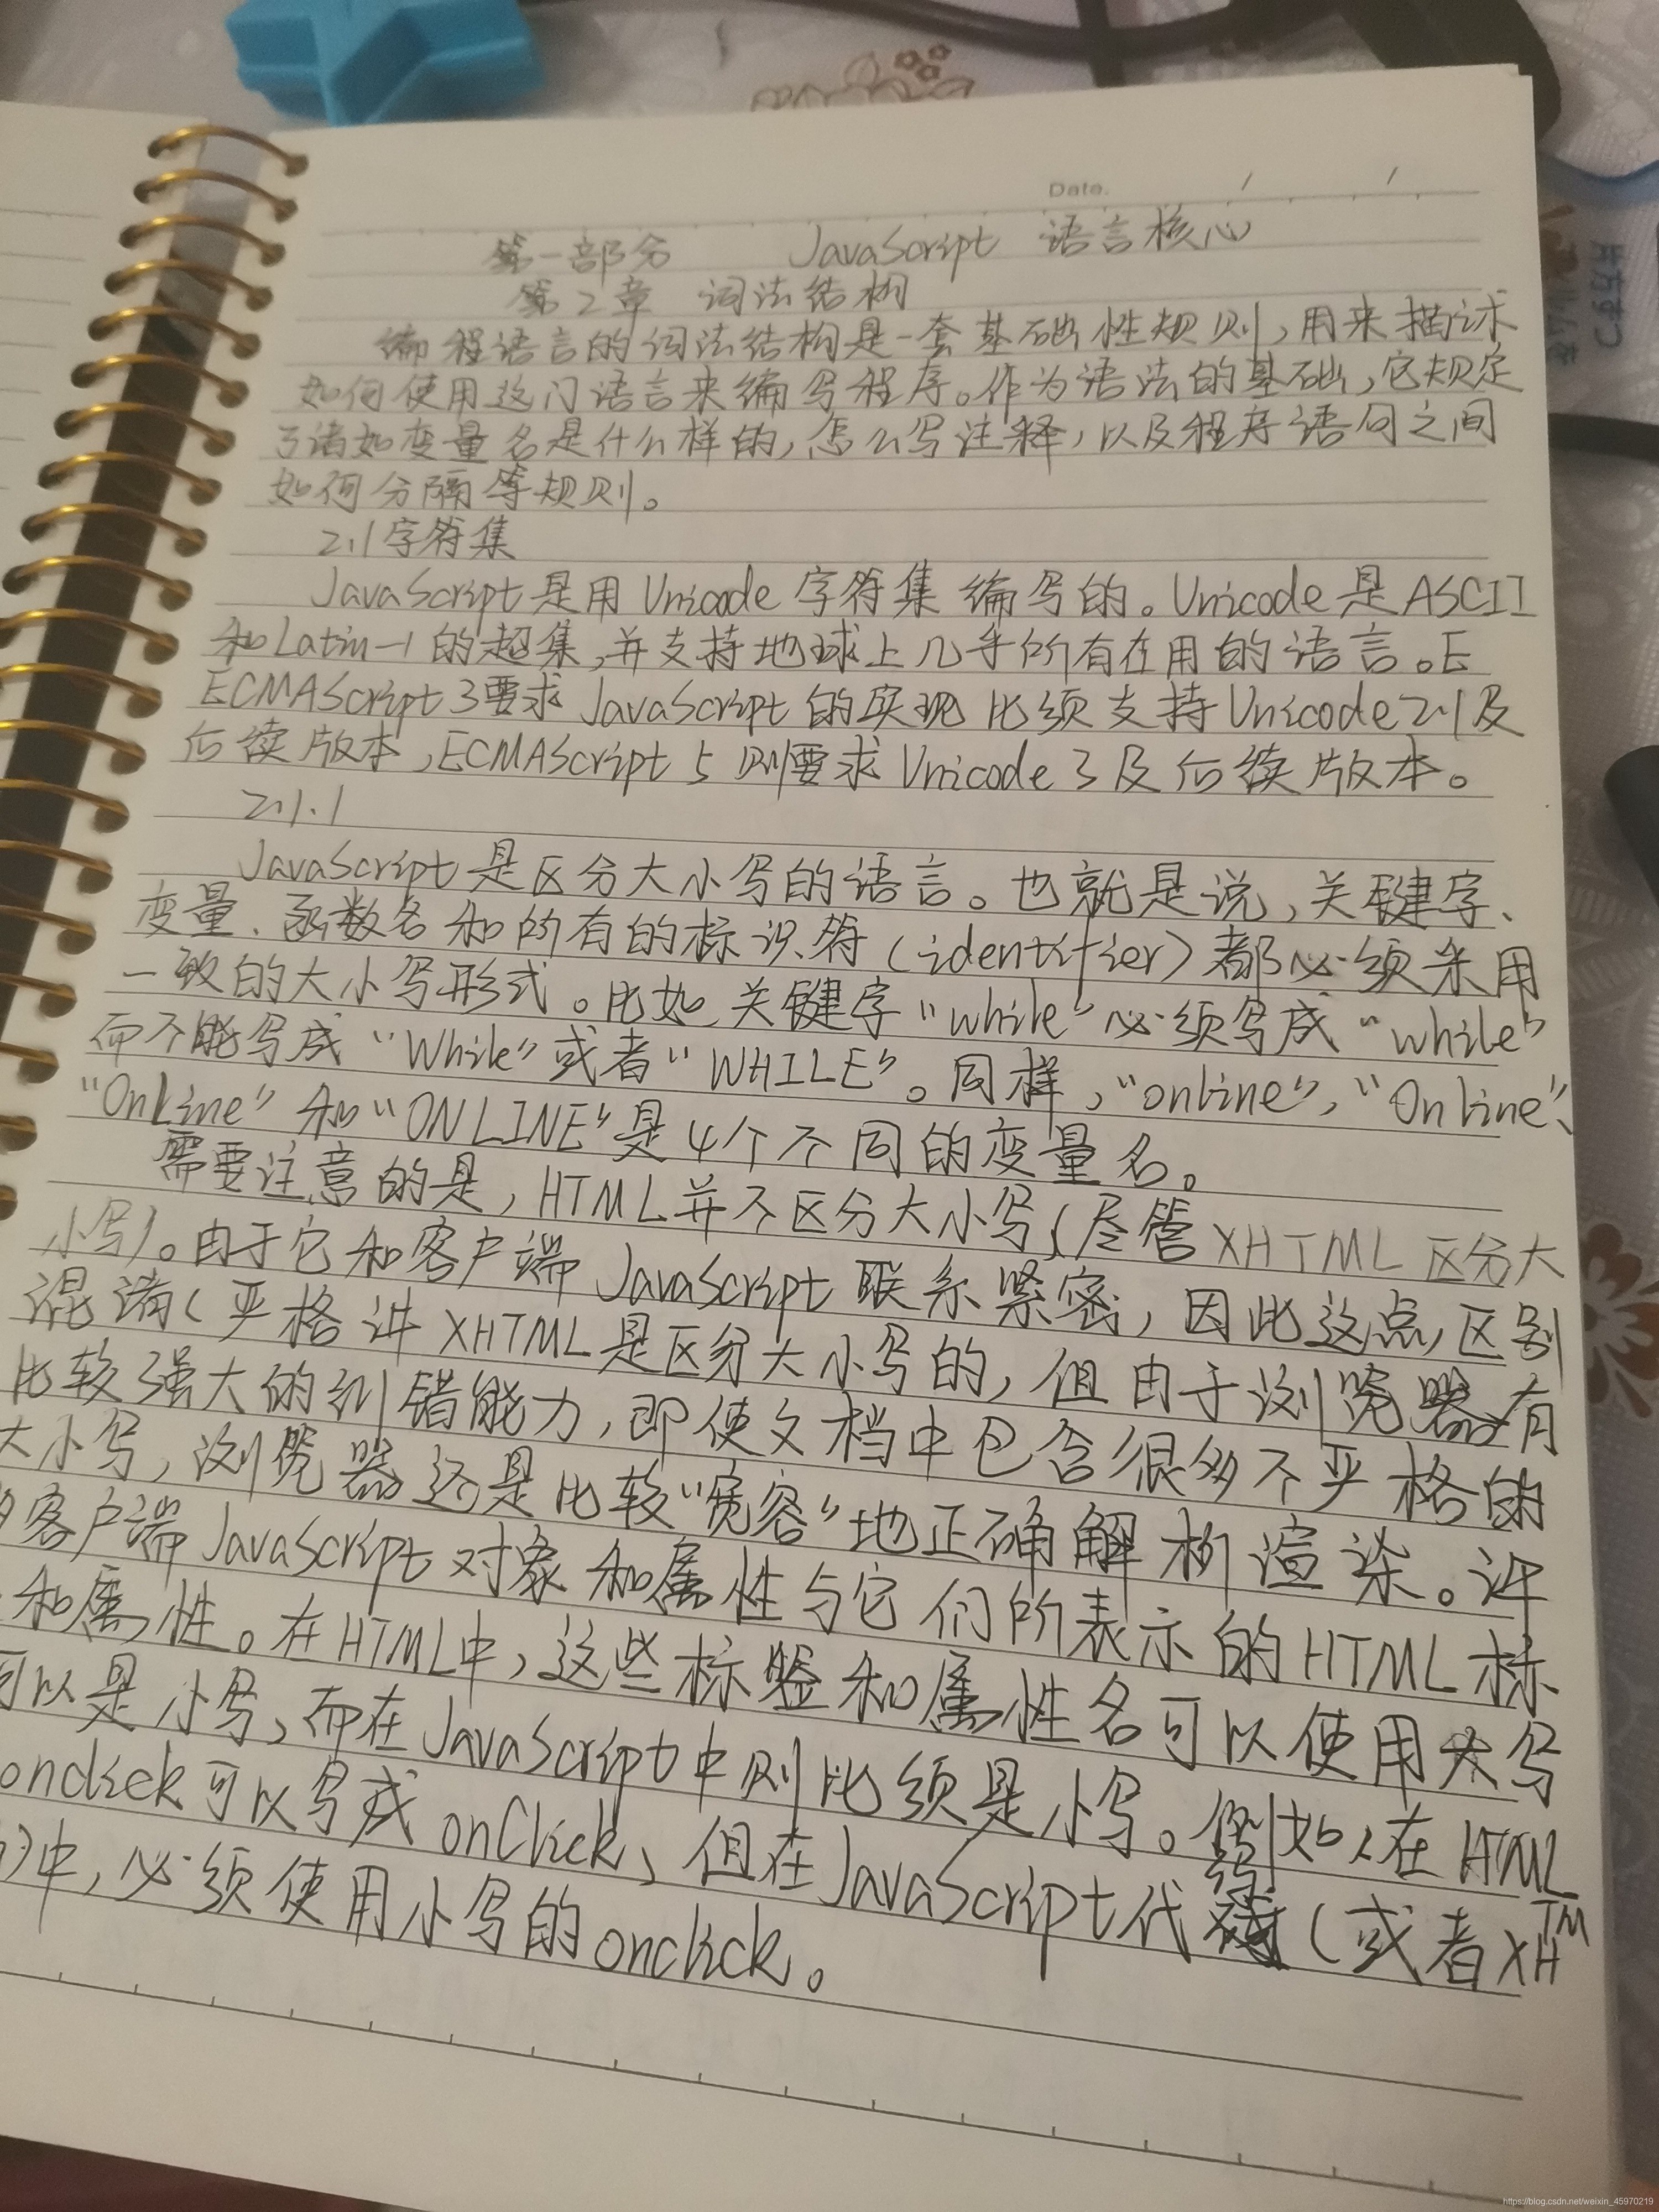 Date. / /
第一部分 JavaScript 语言核心
第2章 词法结构
编程语言的词法结构是一套基础性规则,用来描述
如何使用这门语言来编写程序。作为语法的基础,它规定
了诸如变量名是什么样的,怎么写注释,以及程序语句之间
如何分隔等规则。
2.1字符集
JavaScript是用Unicode字符集编写的。Unicode是ASCII
和Latin-1的超集,并支持地球上几乎所有在用的语言。E
ECMAScript3要求JavaScript的实现必须支持Unicode2.1及
后续版本,ECMAScript 5则要求Unicode 3及后续版本。
2.1.1
JavaScript是区分大小写的语言。也就是说,关键字、
变量、函数名和所有的标识符(identifier)都必须采用
一致的大小写形式。比如,关键字"while"必须写成"while"
而不能写成"While"或者"WHILE"。同样,"online","Online"、
"OnLine"和"ONLINE"是4个不同的变量名。
需要注意的是,HTML并不区分大小写(尽管XHTML区分大
小写)。由于它和客户端JavaScript联系紧密,因此这点区别
混淆(严格讲XHTML是区分大小写的,但由于浏览器有
比较强大的纠错能力,即使文档中包含很多不严格的
大小写,浏览器还是比较"宽容"地正确解析渲染。许
客户端JavaScript对象和属性与它们所表示的HTML标
和属性。在HTML中,这些标签和属性名可以使用大写
可以是小写,而在JavaScript中则必须是小写。例如,在HTML
onclick可以写成onClick、但在JavaScript代码(或者XHTM
中,必须使用小写的onclick。
https://blog.csdn.net/weixin_45970219